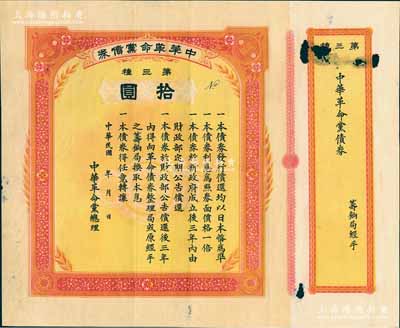 中華革命黨債券
第三種
拾圓
No
一本債券發行償還均以日本幣為準
一本債券利息為照券面價格一倍
一本債券於新政府成立後三年內由
財政部定期公告償還
一本債券於財政部公告償還後三年
內得向革命債券整理局或原經手
之籌餉局換取本息
一本債券得任意轉讓
中華民國 年 月 日
中華革命黨總理
第三種
中華革命黨債券
籌餉局經手